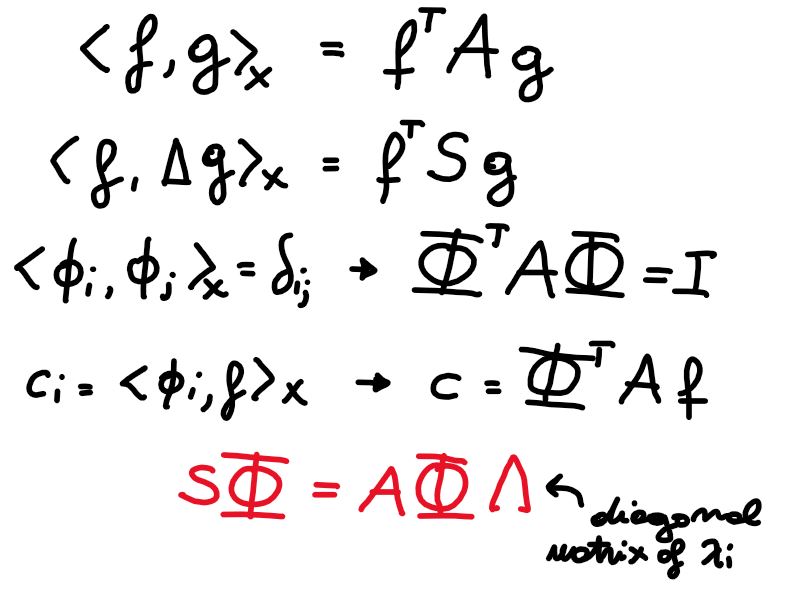 <f, g>ₓ = fᵀ A g
<f, Δg>ₓ = fᵀ S g
<ϕᵢ, ϕⱼ>ₓ = δᵢⱼ → Φᵀ A Φ = I
cᵢ = <ϕᵢ, f>ₓ → c = Φᵀ A f
SΦ = AΦΛ ← diagonal
matrix of λᵢ